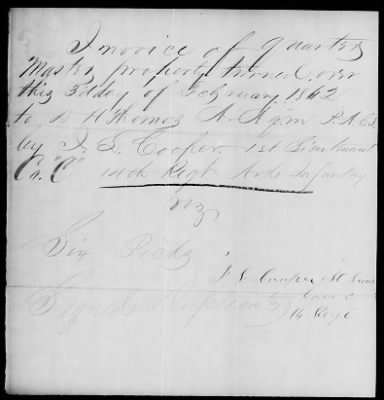 Invoice of Quarter
Master property turned over
this 3d day of February 1862
to D H Thomas A. Q. M P.A.C.S.
by J. S. Cooper 1st Lieutenant
Co. "C" 14th Regt Arks Infantry
viz
Six Picks
J S Cooper 1st Lieut
Com C
14 Regt
Signed Duplicates